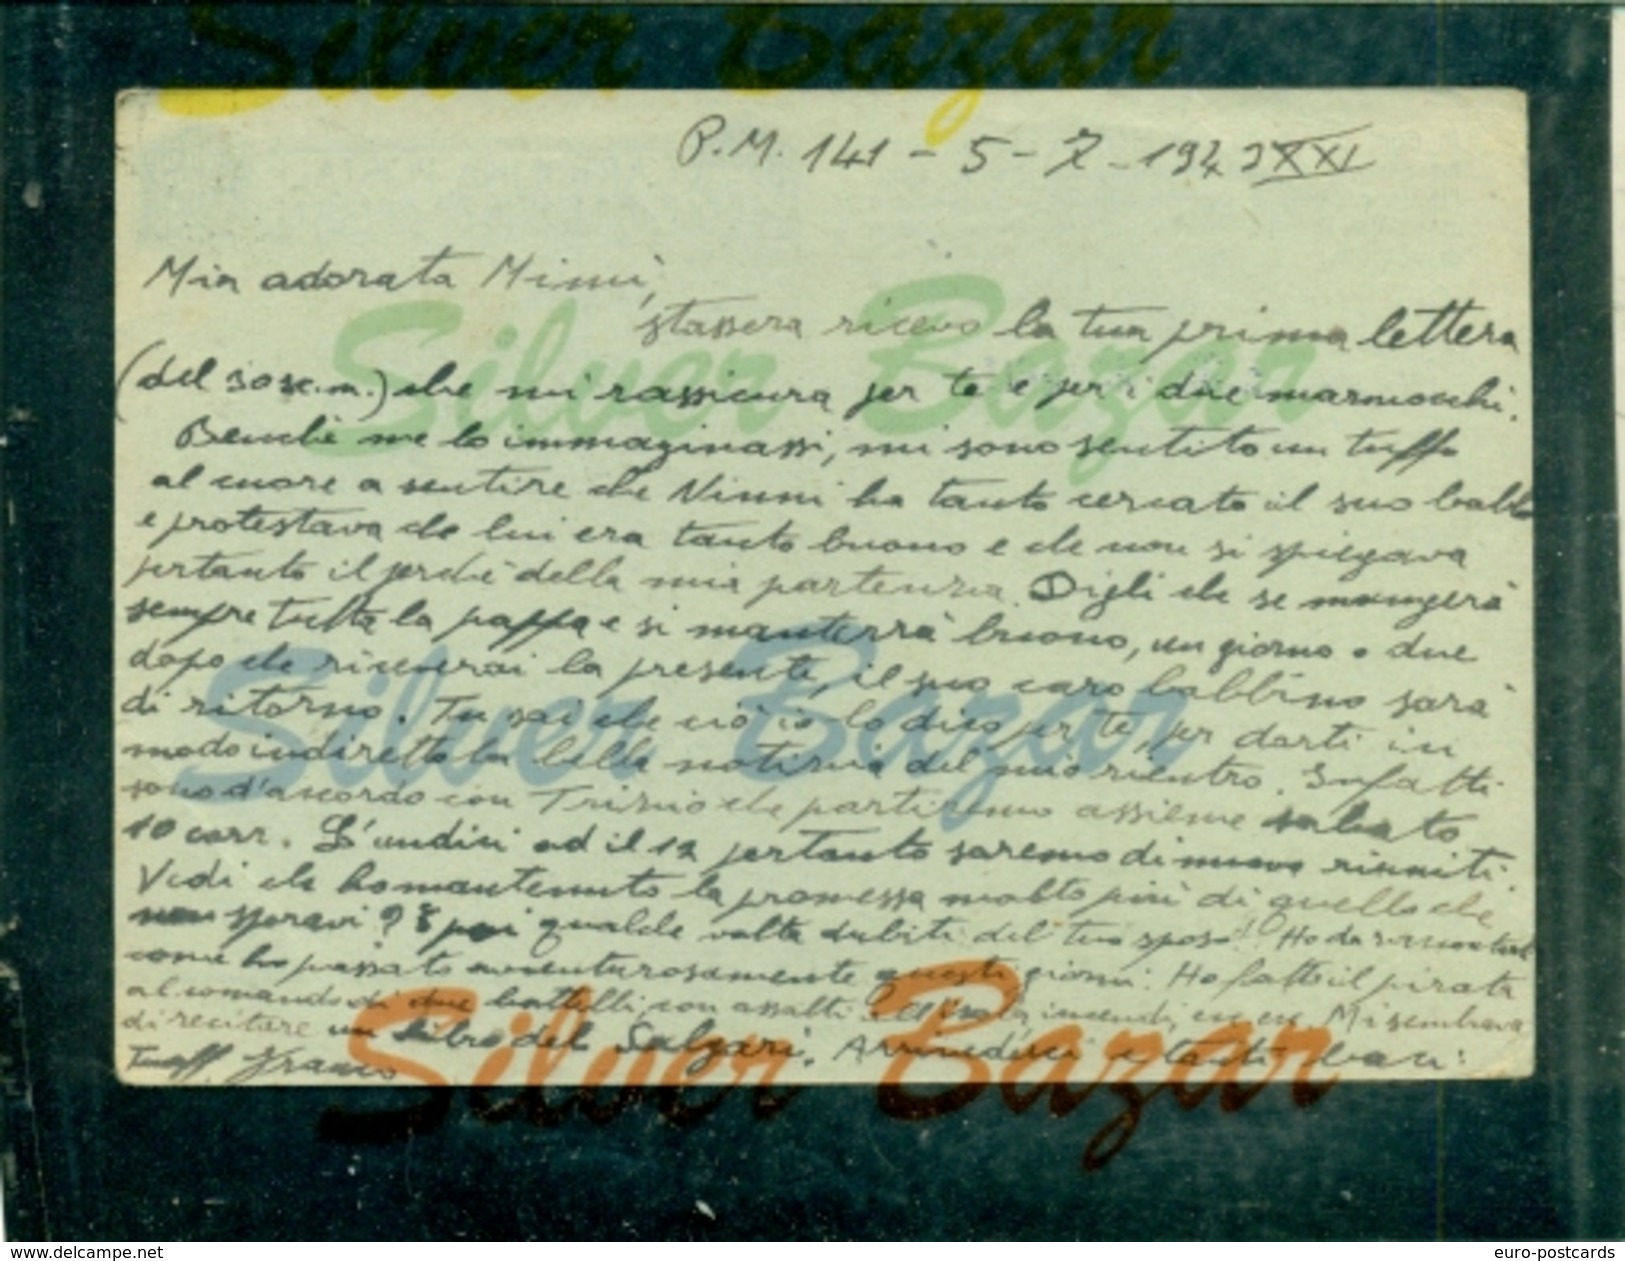 Silver Bazar
P.M. 141 - 5 - 7 - 1943 XXI
Mia adorata Mimì,
stassera ricevo la tua prima lettera
(del 30 sc. m.) che mi rassicura per te e per i due marmocchi.
Benchè me lo immaginassi, mi sono sentito un tuffo
al cuore a sentire che Ninni ha tanto cercato il suo babbo
e protestava che lui era tanto buono e che non si spiegava
pertanto il perchè della mia partenza. Digli che se mangerà
sempre tutta la pappa e si manterrà buono, un giorno o due
dopo che riceverai la presente, il suo caro babbino sarà
di ritorno. Tu sai che ciò io lo dico per te, per darti in
modo indiretto la bella notizia del mio rientro. Infatti
sono d'accordo con che partiremo assieme sabato
10 corr. L'undici od il 12 pertanto saremo di nuovo riuniti.
Vedi che ho mantenuto la promessa molto più di quello che
non speravi? E poi qualche volta dubiti del tuo sposo!! Ho da raccontarti
come ho passato avventurosamente questi giorni: Ho fatto il pirata
al comando di due battelli, con assalti all'isola, incendi, ecc. ecc. Mi sembrava
di recitare un libro del Salgari. Arrivederci e tanti baci:
Tuo aff. Franco
Silver Bazar
Silver Bazar
Silver Bazar
www.delcampe.net
euro-postcards